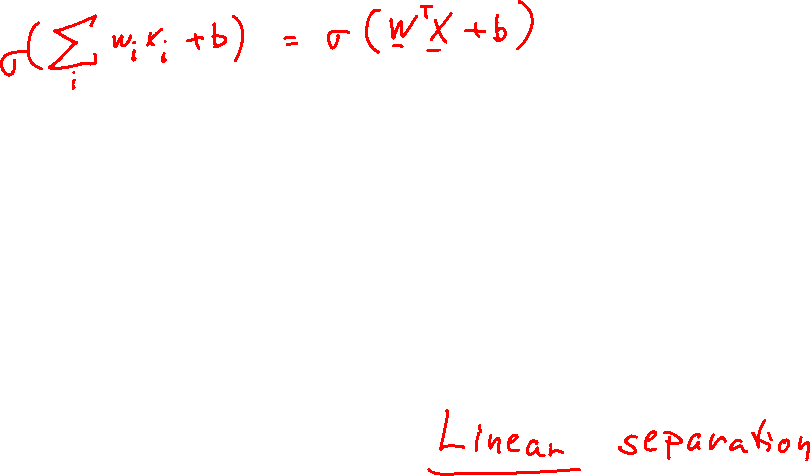 σ(∑_i w_i x_i + b) = σ(W^T X + b)
Linear separation